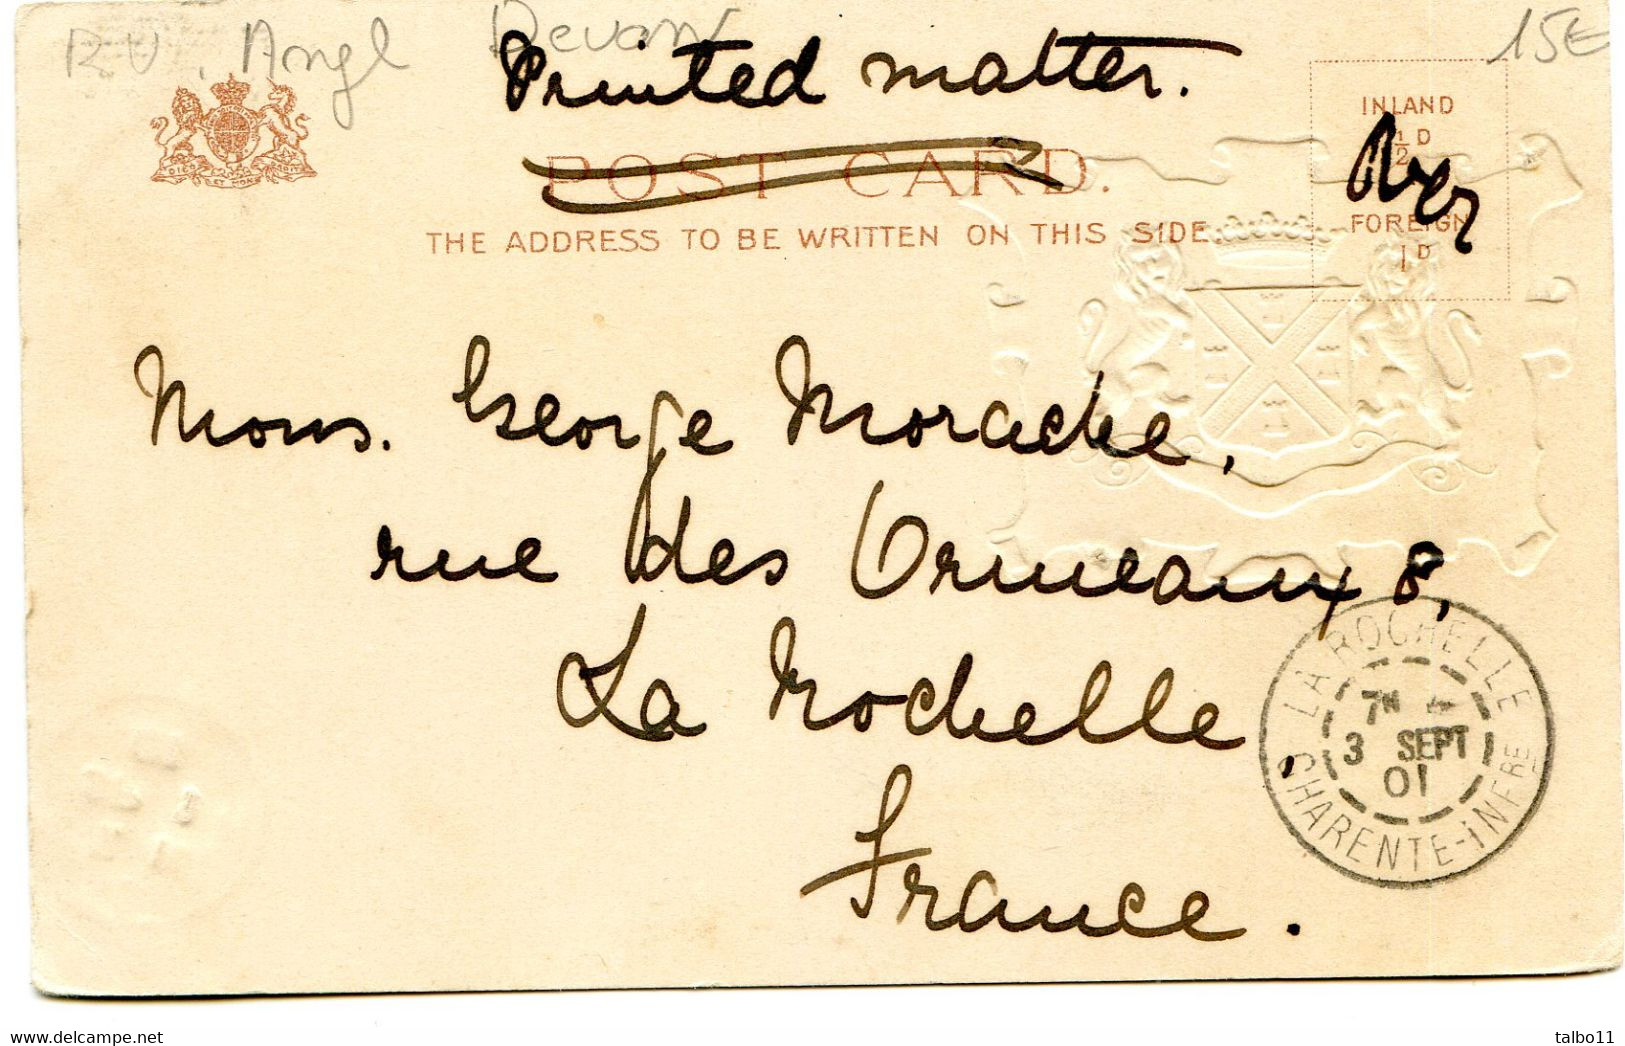 RU. Angl Devon
15€
Printed matter.
POST CARD.
THE ADDRESS TO BE WRITTEN ON THIS SIDE.
INLAND
½ D
Over
FOREIGN
1 D
Mons. George Morache,
rue des Ormeaux 8,
La Rochelle,
France.
LA ROCHELLE
3 SEPT
01
CHARENTE-INFRE
www.delcampe.net
talbo11